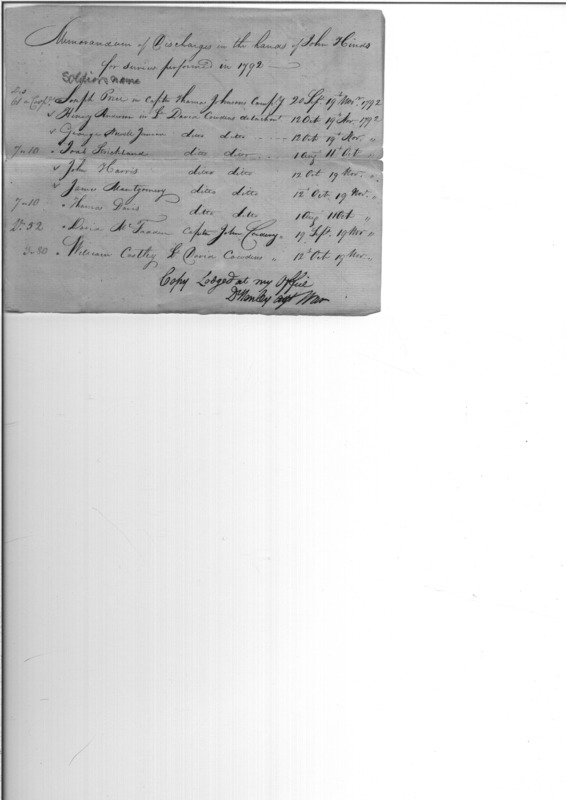 Memorandum of Discharges in the hands of John Hinds
for service preformed in 1792
Soldiers name
Joseph Price in Captn Thomas Johnson Compy 20 Sept. 19th Novr. 1792
Henry in Lt David detachmt 12 Oct 19 Nov. 1792
George Junior ditto ditto 12 Oct 19th Nov. "
7-10 Strickland ditto ditto 1 Aug 11th Oct "
John Harris ditto ditto 12 Oct 19 Nov. "
James Montgomery ditto ditto 12th Oct. 19 Nov. "
7-10 Thomas Davis ditto ditto 1 Aug 11 Oct "
David Captn John 19 Sept. 19 Nov "
3.30 William Lt David 12th Oct 19 Nov "
Copy Lodged at my Office
D Henley Agt War